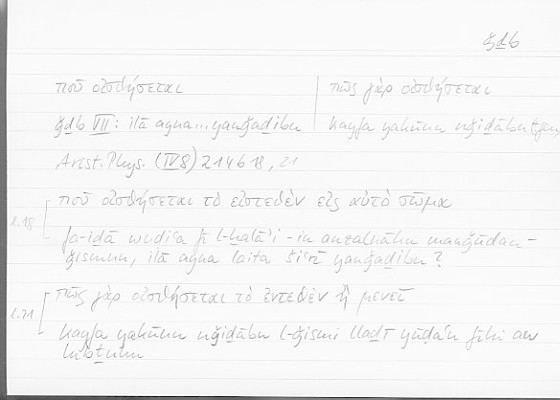 ǧḏb
ποῦ οἰσθήσεται πῶς γὰρ οἰσθήσεται
ǧḏb VII: ilā ayna...yanǧaḏibu kayfa yakūnu nǧiḏābu
Arist. Phys. (IV 8) 214 b 18, 21
l.18 ποῦ οἰσθήσεται τὸ εἰστεθὲν εἰς αὐτὸ σῶμα
fa-iḏā wuḍiʿa fī l-ḫalāʾi -in anzalnāhu mawǧūdan -
ǧismun, ilā ayna laita šiʿrī yanǧaḏibu ?
l.21 πῶς γὰρ οἰσθήσεται τὸ ἐντεθὲν ἢ μενεῖ
kayfa yakūnu nǧiḏābu l-ǧismi llaḏī yūḍaʿu fīhi aw
lubṯuhu